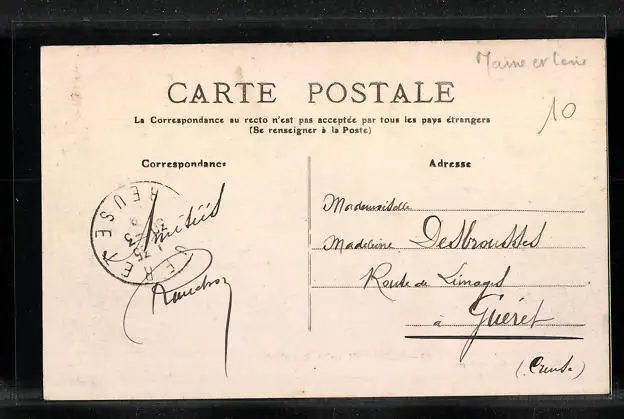 Maine et Loire
CARTE POSTALE
10
La Correspondance au recto n'est pas acceptée par tous les pays étrangers
(Se renseigner à la Poste)
Correspondance
Adresse
Amitiés
Mademoiselle
Madeleine Desbrousses
Route de Limoges
à Guéret
(Creuse)